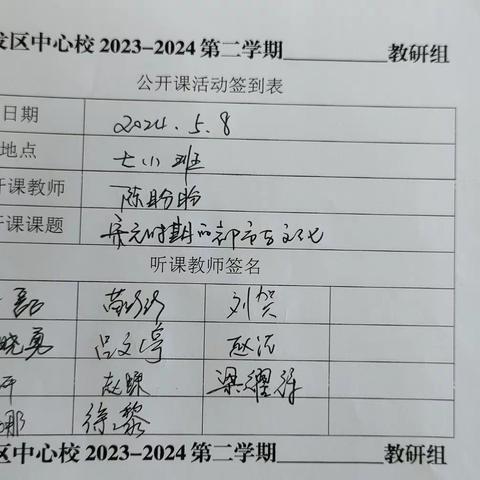 发区中心校 2023–2024 第二学期________教研组
公开课活动签到表
日期 2024.5.8
地点 七（1）班
开课教师 陈盼盼
开课课题 宋元时期的都市与文化
听课教师签名
磊 苗 刘贺
晓勇 吕文婷
赵
那 徐黎
区中心校 2023–2024 第二学期________教研组